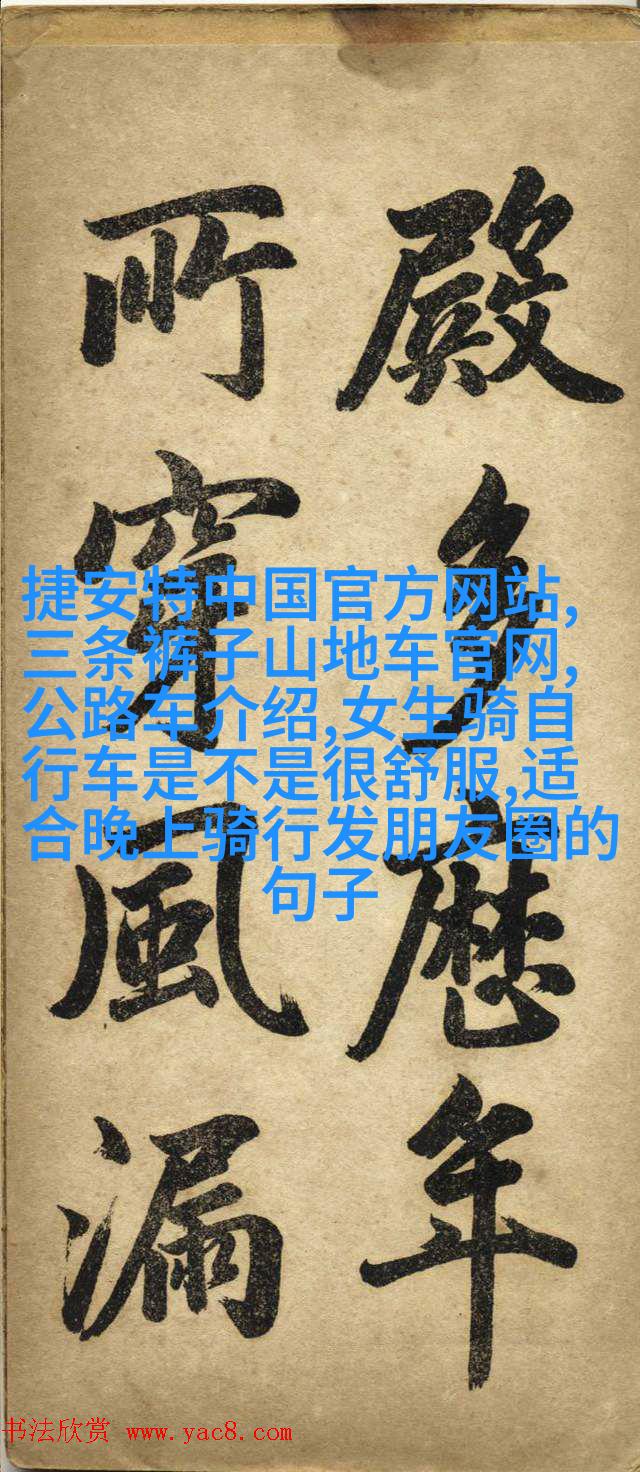 殿多歷年
所穿風漏
捷安特中国官方网站,
三条裤子山地车官网,
公路车介绍,女生骑自
行车是不是很舒服,适
合晚上骑行发朋友圈的
句子
书法欣赏 www.yac8.com